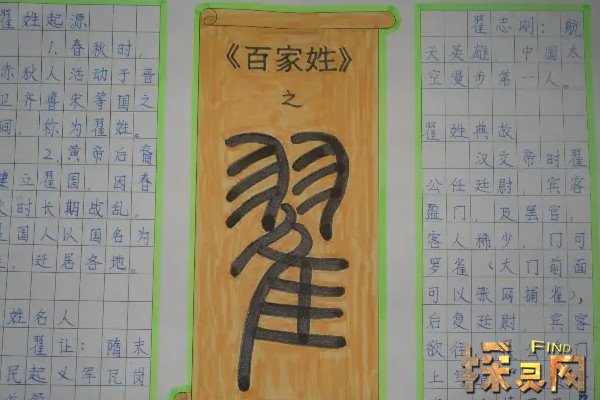 翟姓起源
1、春秋时，
赤狄人活动于晋
卫齐鲁宋等国之
间，称为翟姓。
2、黄帝后裔
建立翟国，因春
秋时长期战乱，
翟国人以国名为
姓，迁居各地。
姓名人
翟让：隋末
民起义军瓦岗
《百家姓》
之
翟
翟志刚：航
天英雄，中国太
空漫步第一人。
翟姓典故
汉文帝时翟
公任廷尉，宾客
盈门，及罢官，
客人稀少，门可
罗雀（大门前面
可以张网捕雀），
后复廷尉，宾客
欲往
门
上
FIND
探灵网